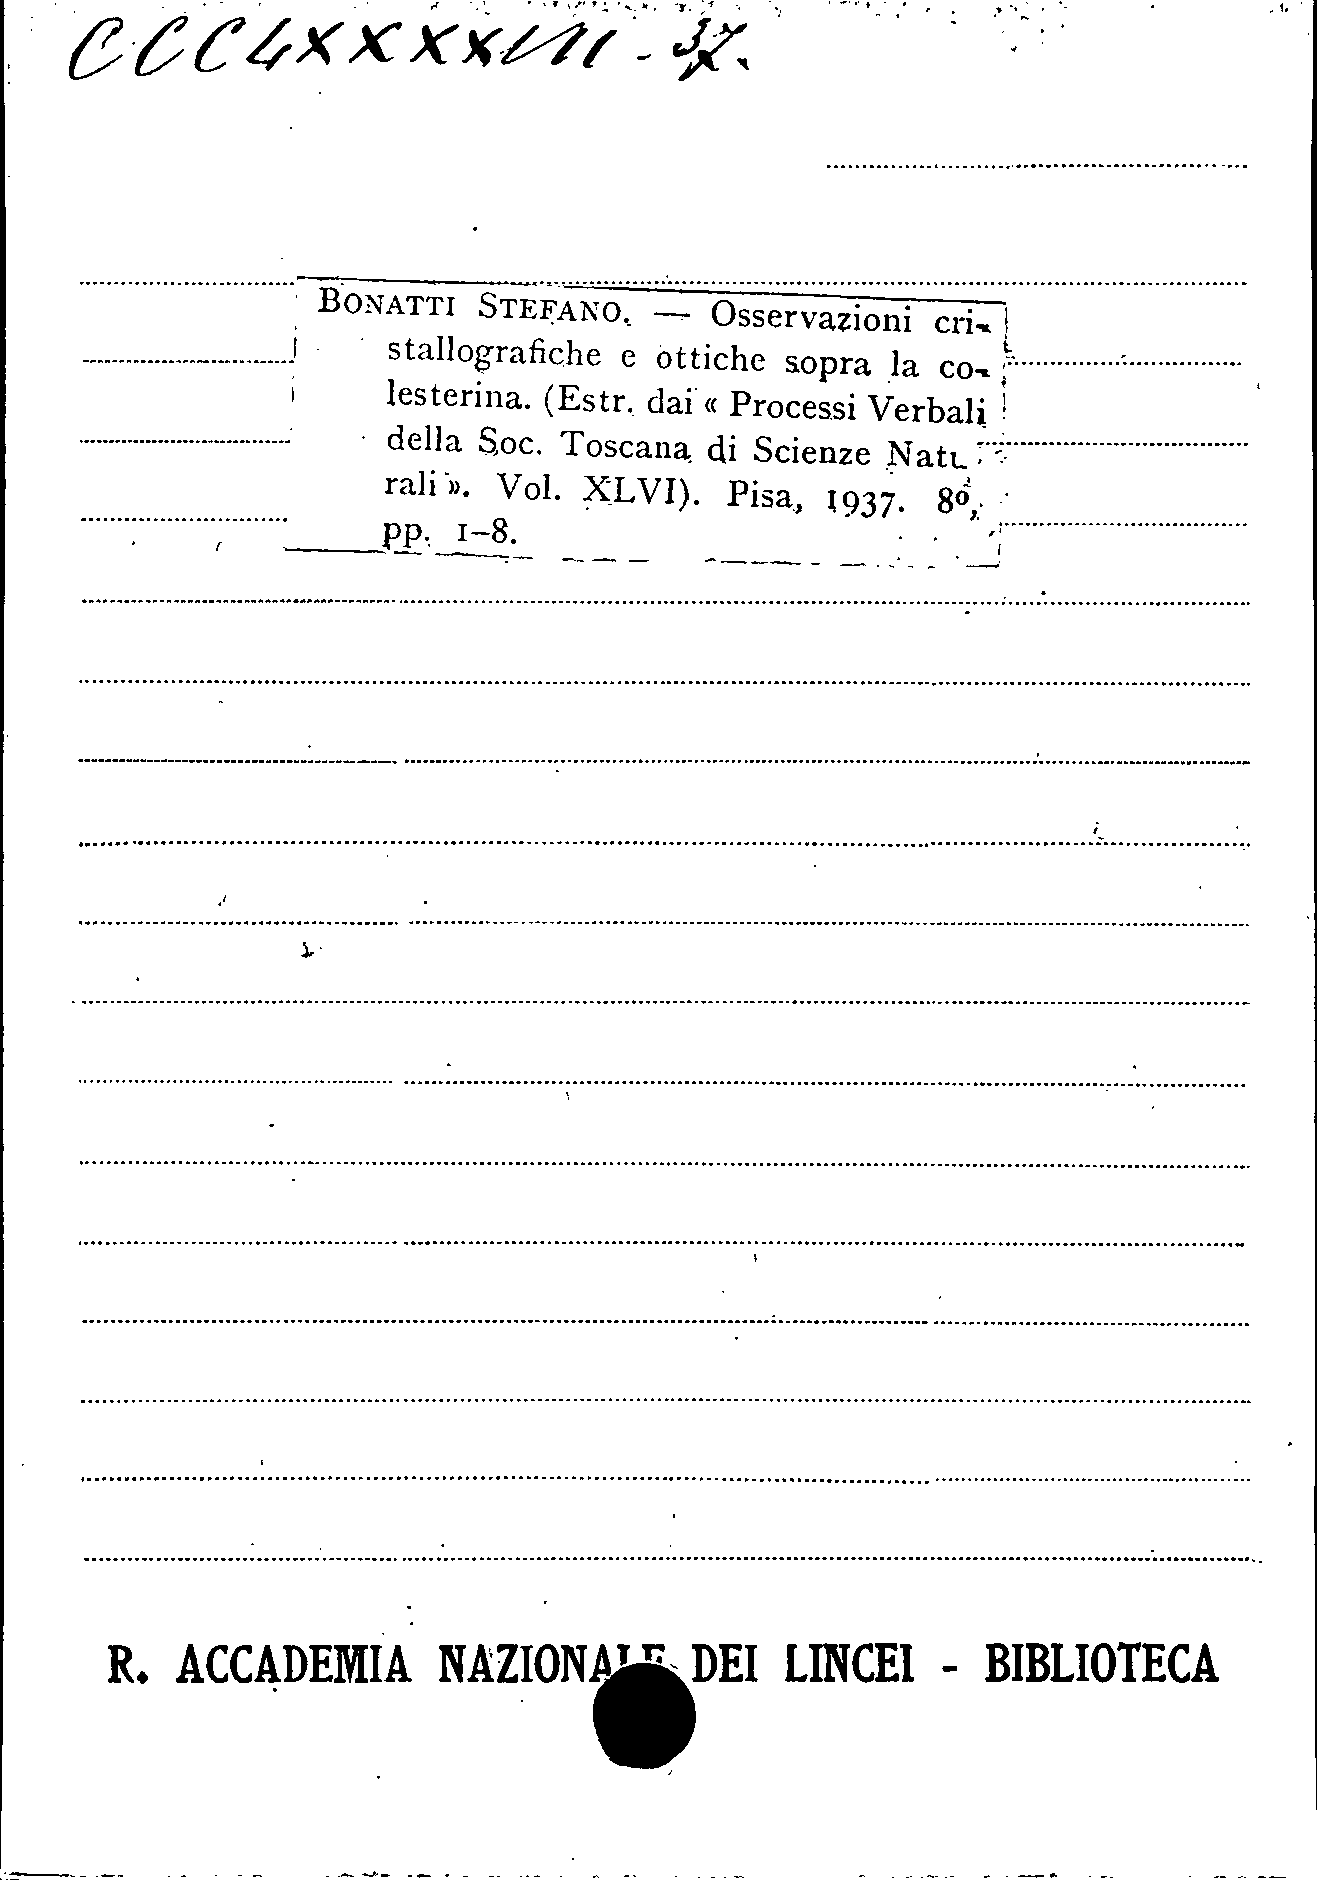 CCCLXXXXVIII - 37.
BONATTI STEFANO. — Osservazioni cri-
stallografiche e ottiche sopra la co-
lesterina. (Estr. dai « Processi Verbali
della Soc. Toscana di Scienze Natu
rali ». Vol. XLVI). Pisa, 1937. 8º,
pp. 1-8.
R. ACCADEMIA NAZIONALE DEI LINCEI - BIBLIOTECA